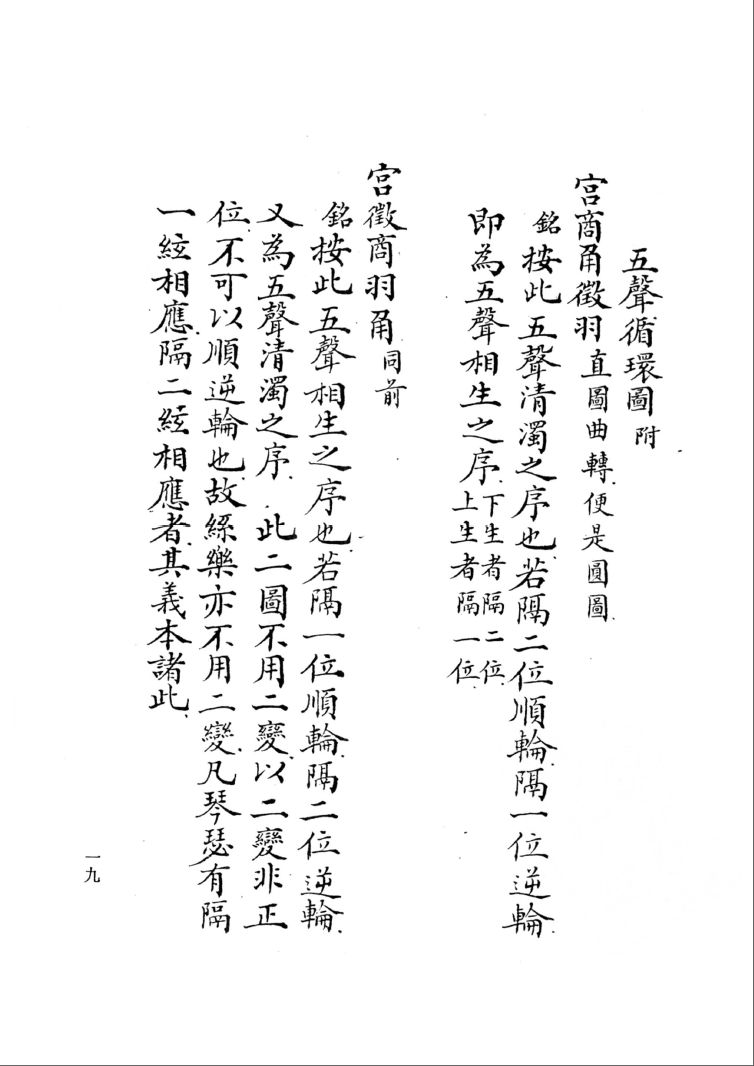 五聲循環圖附
宮商角徵羽直圖曲轉便是圓圖
銘按此五聲清濁之序也若隔二位順輪隔一位逆輪
即為五聲相生之序下生者隔二位上生者隔一位
宮徵商羽角同前
銘按此五聲相生之序也若隔一位順輪隔二位逆輪
又為五聲清濁之序 此二圖不用二變以二變非正
位不可以順逆輪也故絲樂亦不用二變凡琴瑟有隔
一絃相應隔二絃相應者其義本諸此
一九